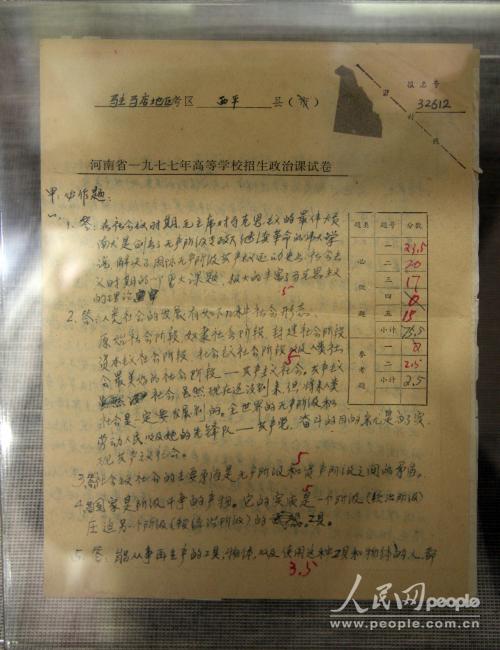 驻马店地区考区 西平 县(市)
报名号
32612
密
封
线
河南省一九七七年高等学校招生政治课试卷
甲、必作题:
一、
1. 答:在社会主义时期,毛主席对马克思主义的最伟大贡
献是创立了无产阶级专政下继续革命的伟大学
说,解决了国际无产阶级
义时期的一个重大课题,极大的丰富了马克思主义
的理论
5
2. 答:人类社会的发展有如下几种社会形态。
原始社会阶段、奴隶社会阶段、封建社会阶段
资本主义社会阶段、社会主义社会阶段以及人类社
会最美好的社会阶段——共产主义社会。共产主义
社会,虽然现在还没到来,但将来人类
社会是一定要发展到的。全世界的无产阶级和
劳动人民以及她的先锋队——共产党,奋斗的目的就是为了实
现共产主义社会。
5
3. 答:社会主义社会的主要矛盾是无产阶级和资产阶级之间的矛盾。
5
4. 答:国家是阶级斗争的产物。它的实质是一个阶级(统治阶级)
压迫另一个阶级(被统治阶级)的工具。
5
5. 答:能从事再生产的工具、物体,以及使用这种工具和物体的人,都
3.5
题类 题号 分数
必作题
一 23.5
二 20
三 17
四
五 15
小计
参考题
一
二 2.5
小计 2.5
人民网 people
www.people.com.cn